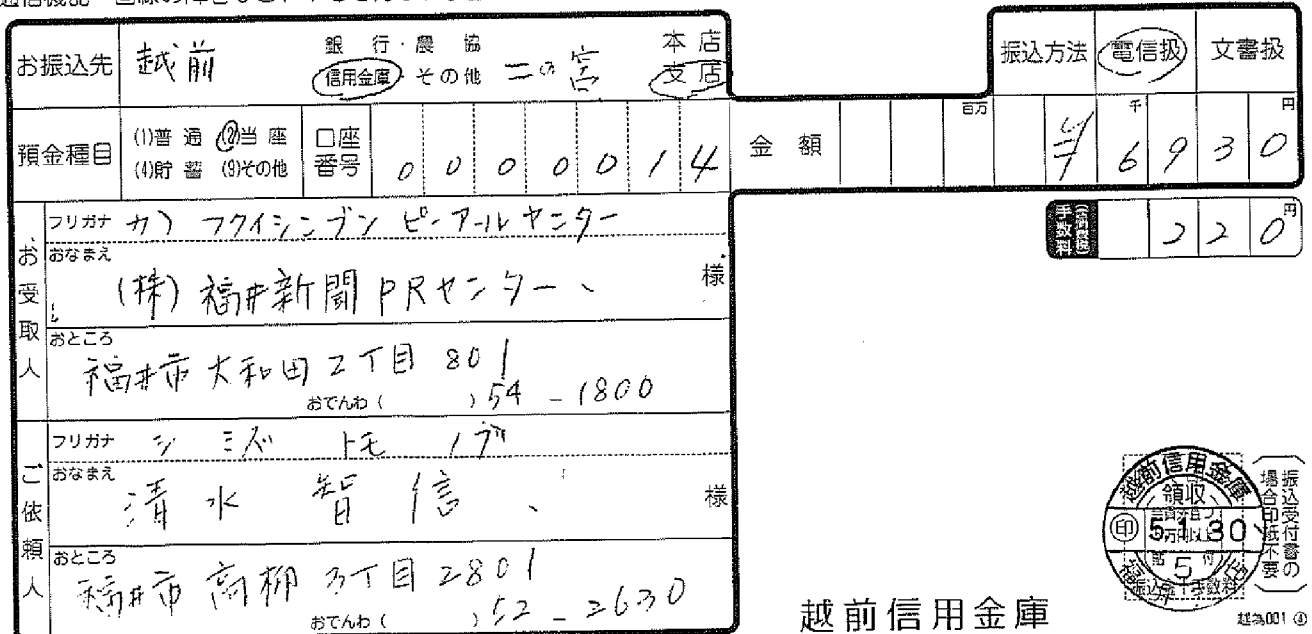 お振込先 越前 銀行・農協 信用金庫 その他 二の宮 本店 支店 振込方法 電信扱 文書扱
預金種目 (1)普通 (2)当座 (4)貯蓄 (9)その他 口座番号 0000014 金額 百万 千 円 ¥6930
手数料 220円
お受取人
フリガナ カ) フクイシンブン ピーアールセンター
おなまえ (株) 福井新聞PRセンター 様
おところ 福井市大和田2丁目801
おでんわ( )54-1800
ご依頼人
フリガナ シミズ トモノブ
おなまえ 清水 智信 様
おところ 福井市高柳3丁目2801
おでんわ( )52-2630
越前信用金庫
領収
印 5.1.30
5
振込金+手数料
振込受付書の場合印紙不要
越前信用金庫